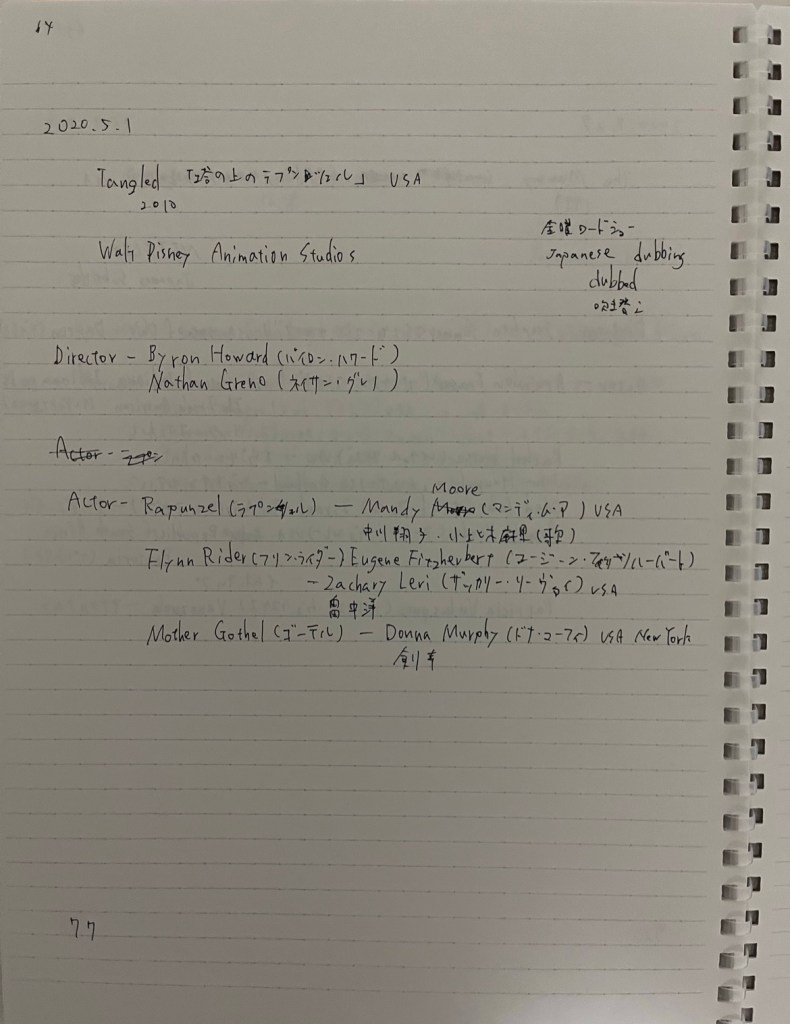 64
2020.5.1
Tangled 「塔の上のラプンツェル」 USA
2010
金曜ロードショー
Walt Disney Animation Studios
Japanese dubbing
dubbed
吹き替え
Director - Byron Howard (バイロン・ハワード)
Nathan Greno (ネイサン・グレノ)
Actor -
Moore
Actor - Rapunzel (ラプンツェル) — Mandy (マンディ・ムーア) USA
中川翔子・小此木麻里 (歌)
Flynn Rider (フリン・ライダー) Eugene Fitzherbert (ユージーン・フィッツハーバート)
- Zachary Levi (ザッカリー・リーヴァイ) USA
畠中洋
Mother Gothel (ゴーテル) — Donna Murphy (ドナ・マーフィ) USA New York
剣幸
77